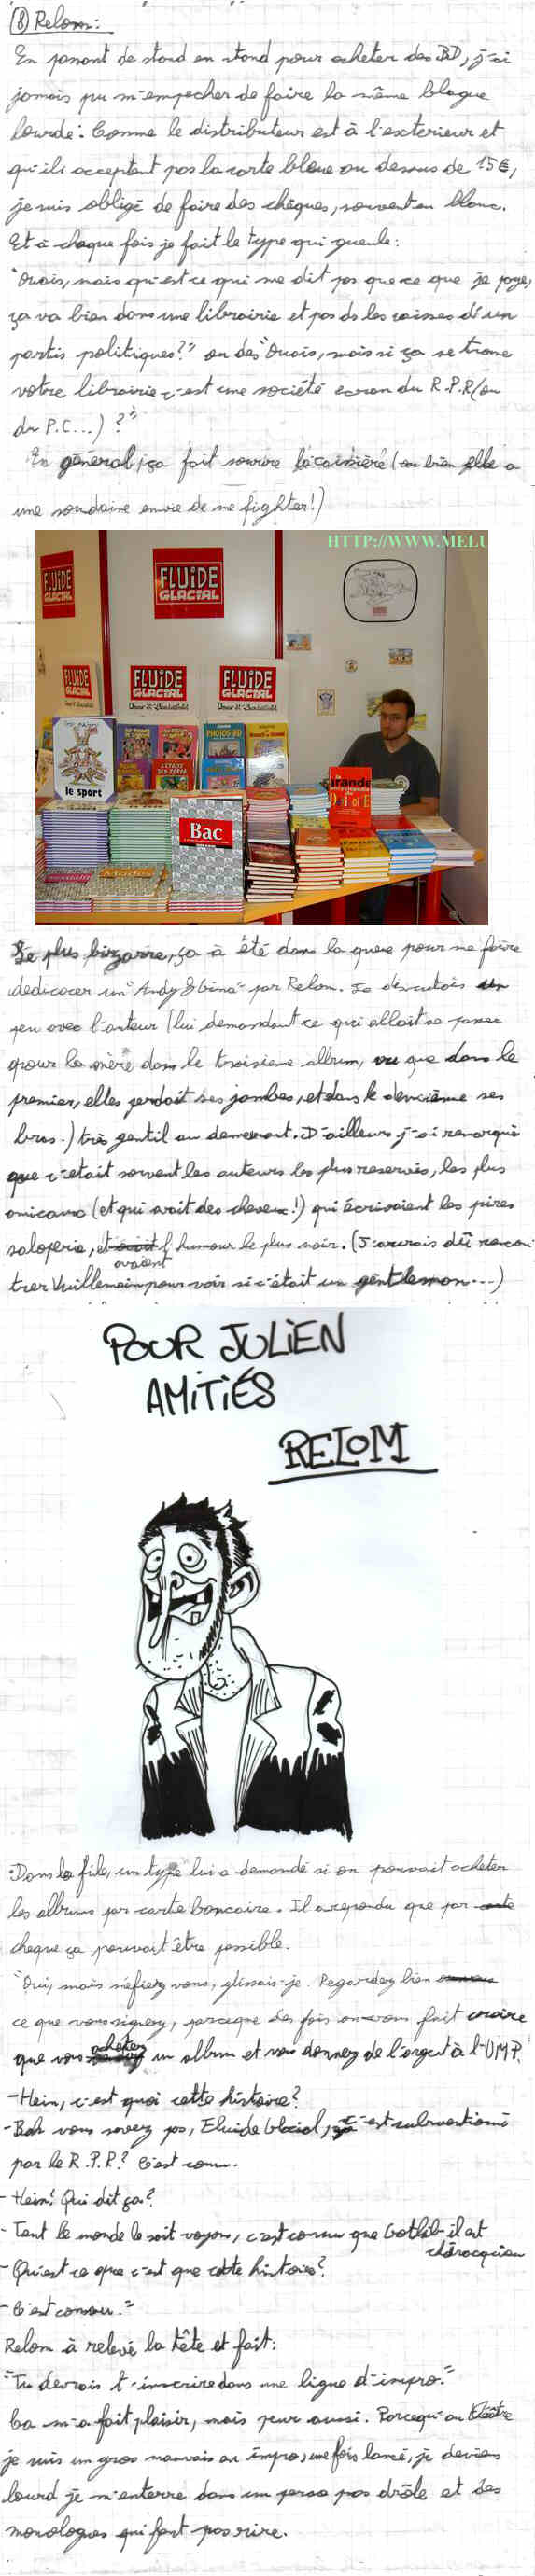 ⑧ Relom:
En passant de stand en stand pour acheter des BD, j'ai
jamais pu m'empecher de faire la même blague
lourde: Comme le distributeur est à l'exterieur et
qu'ils acceptent pas la carte bleue au dessus de 15€,
je suis obligé de faire des chèques, souvent en blanc.
Et à chaque fois je fait le type qui gueule:
"Ouais, mais qu'est ce qui me dit pas que ce que je paye,
ça va bien dans une librairie et pas ds les caisses d'un
partis politiques?" ou des "Ouais, mais si ça se trouve
votre librairie c'est une société ecran du R.P.R (ou
du P.C...) ?"
En général, ça fait sourire la caissière (ou bien elle a
une soudaine envie de me fighter!)
HTTP://WWW.MELU
FLUIDE GLACIAL
FLUIDE GLACIAL
FLUIDE GLACIAL
FLUIDE GLACIAL
FLUIDE GLACIAL
Umour & Bandessinées
PHOTOS-BD
le sport
Bac
Le plus bizarre, ça à été dans la queue pour me faire
dédicacer un "Andy & Gina" par Relom. Je discutais un
peu avec l'auteur (lui demandant ce qui allait se passer
pour la mère dans le troisieme album, vu que dans le
premier, elles perdait ses jambes, et dans le deuxième ses
bras.) très gentil au demeurant. D'ailleurs j'ai remarqué
que c'etait souvent les auteurs les plus reservés, les plus
amicaux (et qui avait des cheveux!) qui écrivaient les pires
saloperie, et avait l'humour le plus noir. (J'aurais dû rencon
avaient
trer Vuillemin pour voir si c'était un gentleman...)
POUR JULIEN
AMITIÉS
RELOM
Dans la file, un type lui a demandé si on pouvait acheter
les albums par carte bancaire. Il a repondu que par carte
cheque ça pouvait être possible.
"Oui, mais méfiez vous, glissais-je. Regardez bien
ce que vous signez, parceque des fois on vous fait croire
que vous achetez un album et vous donnez de l'argent à l'UMP.
- Hein, c'est quoi cette histoire?
- Bah vous savez pas, Fluide Glacial, c'est subventionné
par le R.P.R? C'est connu.
- Hein! Qui dit ça?
- Tout le monde le sait voyons, c'est connu que Gotlib il est
chiracquien
- Qu'est ce que c'est que cette histoire?
- C'est connu."
Relom à relevé la tête et fait:
"Tu devrais t'inscrire dans une ligue d'impro."
Ca m'a fait plaisir, mais peur aussi. Parcequ'au théâtre
je suis un gros mauvais en impro, une fois lancé, je deviens
lourd je m'enterre dans un perso pas drôle et des
monologues qui font pas rire.